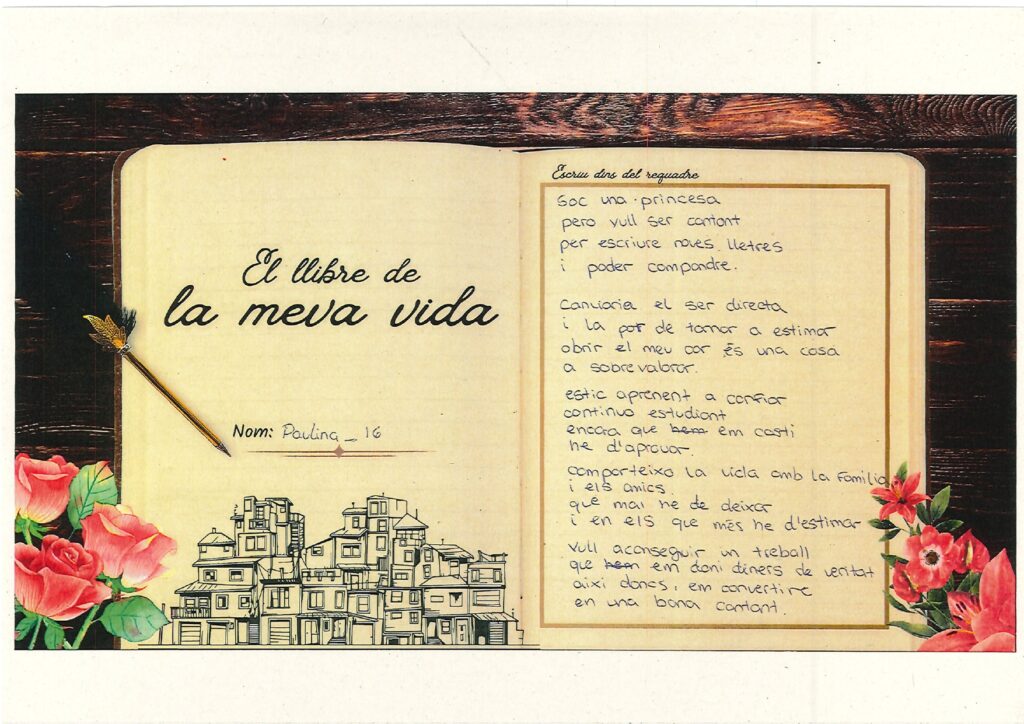 El llibre de
la meva vida
Nom: Paulina _ 16
Escriu dins del requadre
Soc una princesa
pero vull ser cantant
per escriure noves lletres
i poder compondre.
Canviaria el ser directa
i la por de tornar a estimar
obrir el meu cor és una cosa
a sobrevalorar.
estic aprenent a confiar
continuo estudiant
encara que hem em costi
he d'aprovar.
comparteixo la vida amb la familia
i els amics
que mai he de deixar
i en els que més he d'estimar
Vull aconseguir un treball
que hem em doni diners de veritat
aixi doncs, em convertire
en una bona cantant.